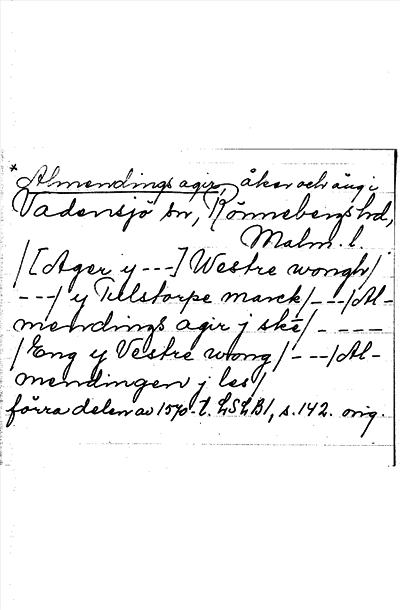 * Almendings agir, åker och äng i
Vadensjö sn, Rönnebergs hd,
Malm. l.
/[Ager y ---] Westre wongh/
---/ y Tulstorpe marck/---/Al-
mendings agir j ské/----
/Eng y Vestre wong/---/Al-
mendingen j les/
förra delen av 1570-t. LSLB1, s. 142. orig.